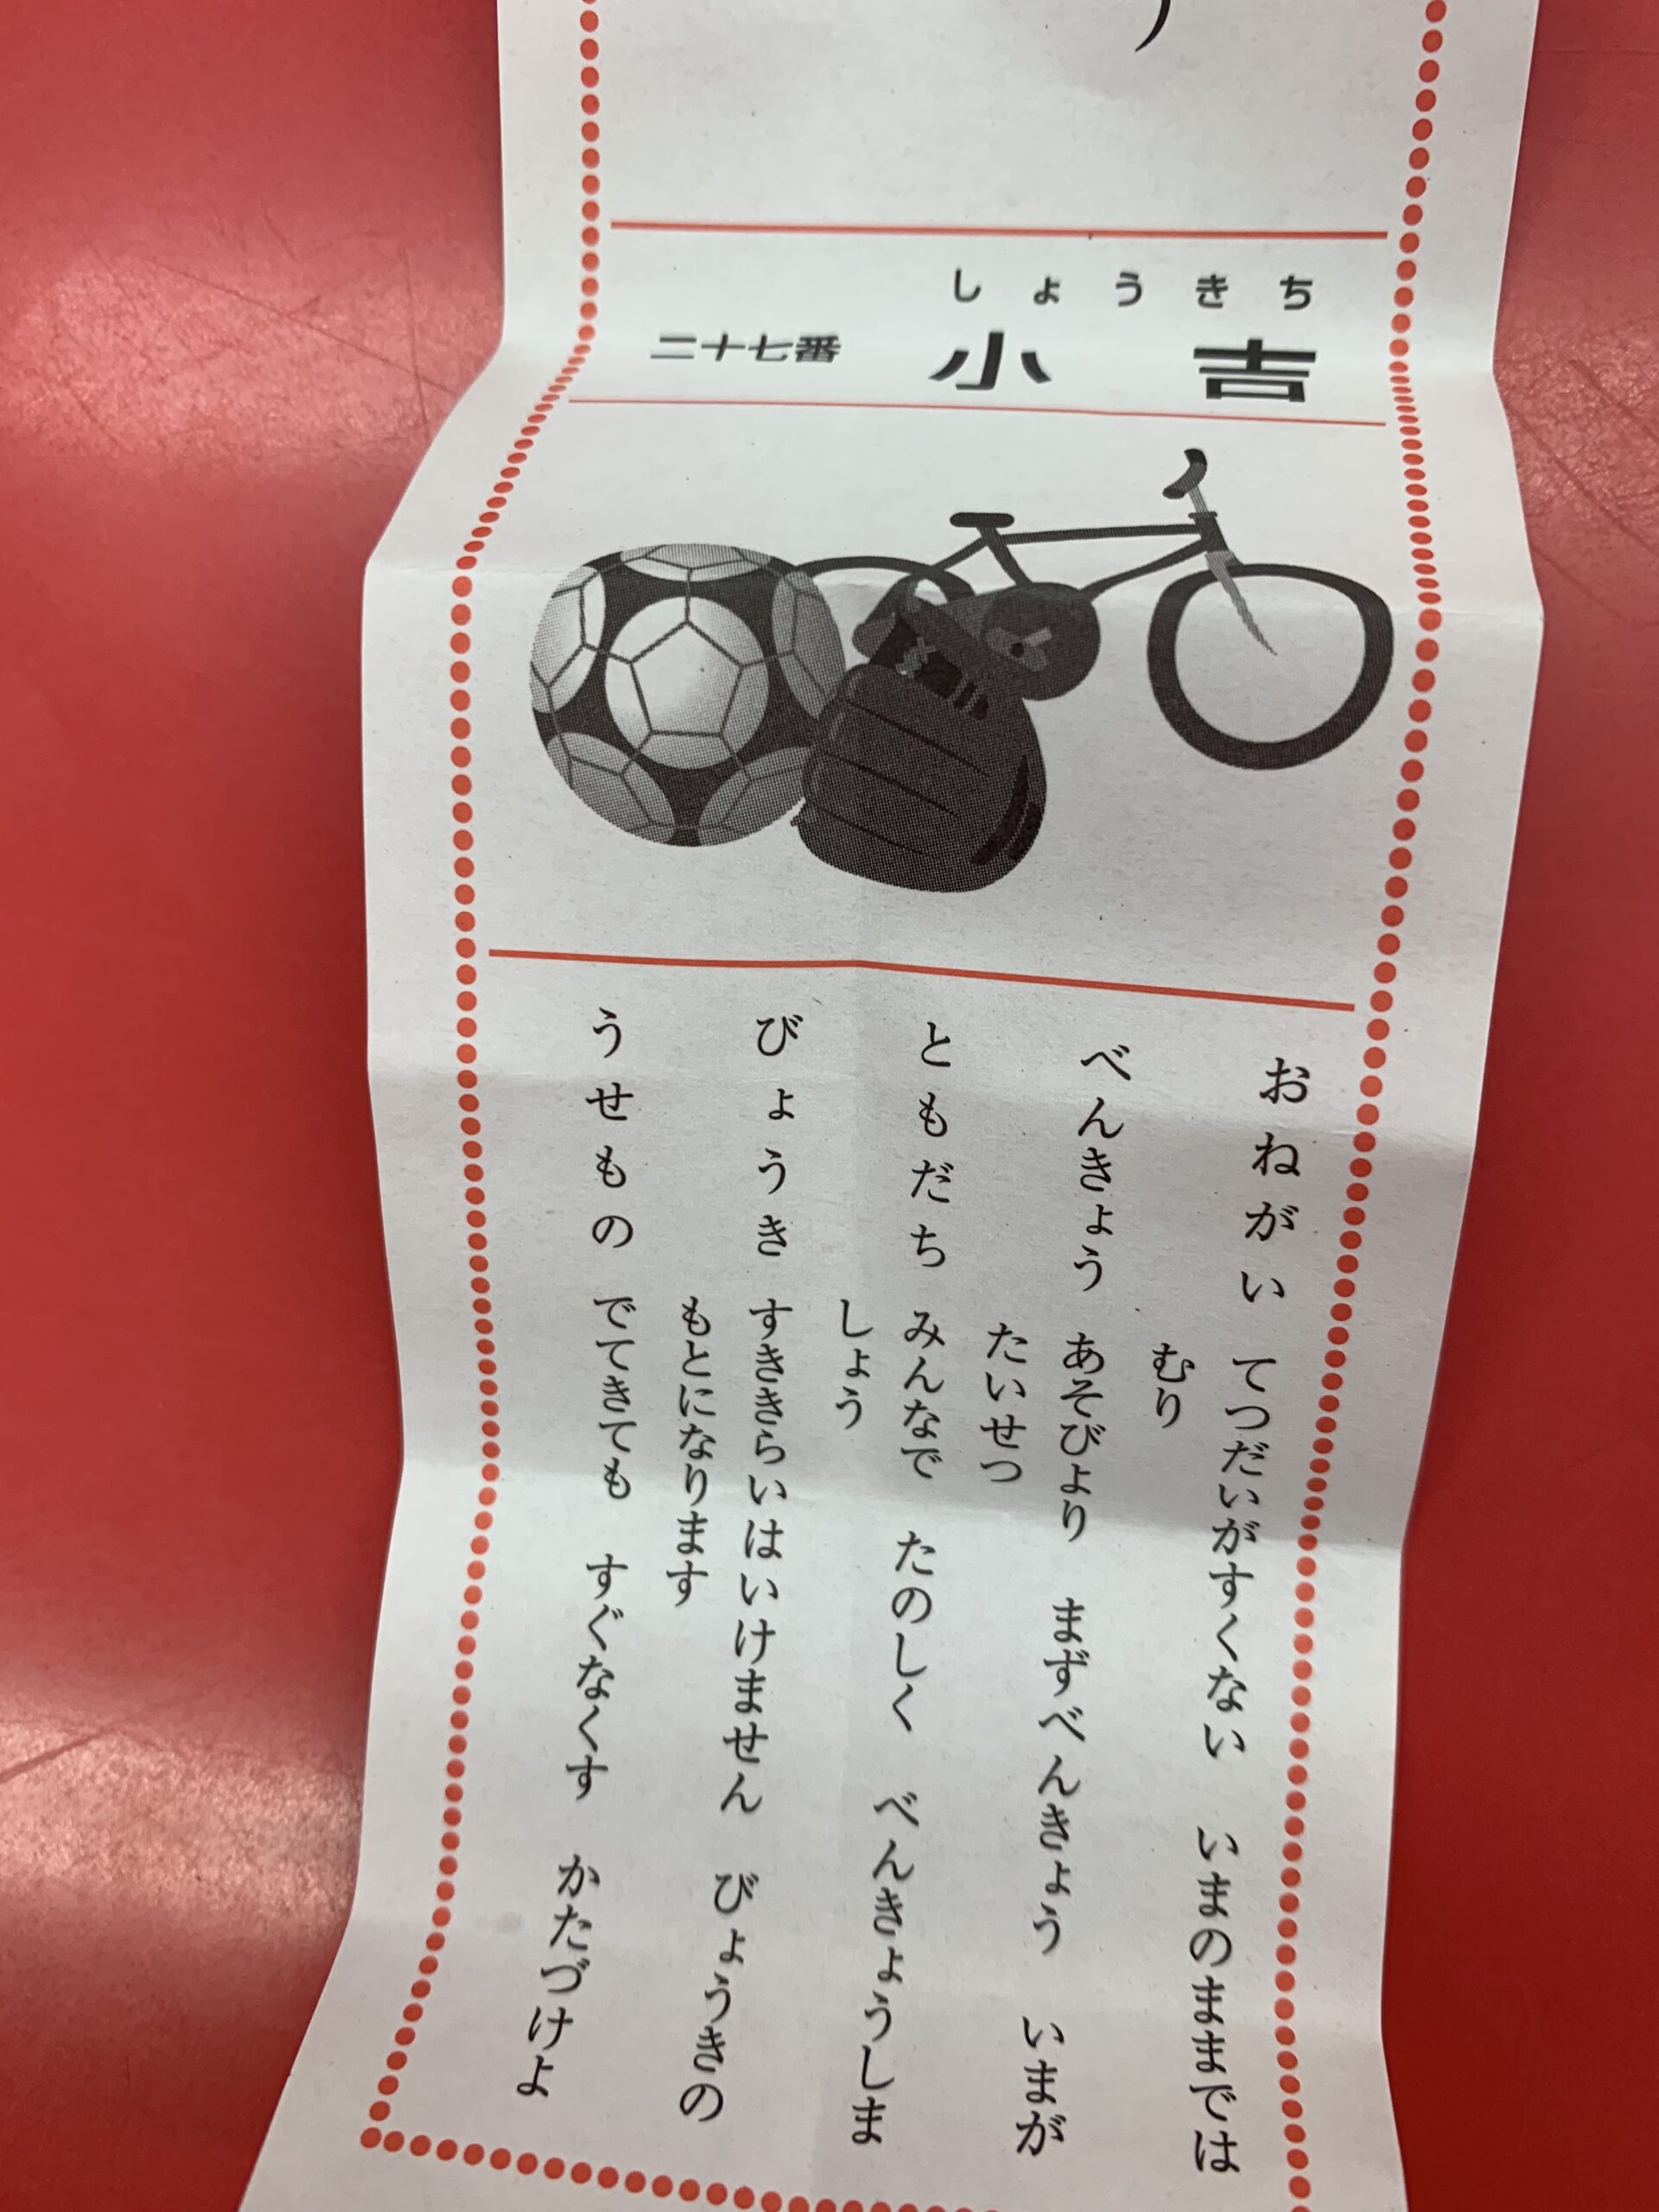 しょうきち
二十七番 小吉
おねがい てつだいがすくない いまのままでは
むり
べんきょう あそびより まずべんきょう いまが
たいせつ
ともだち みんなで たのしく べんきょうしま
しょう
びょうき すききらいはいけません びょうきの
もとになります
うせもの でてきても すぐなくす かたづけよ